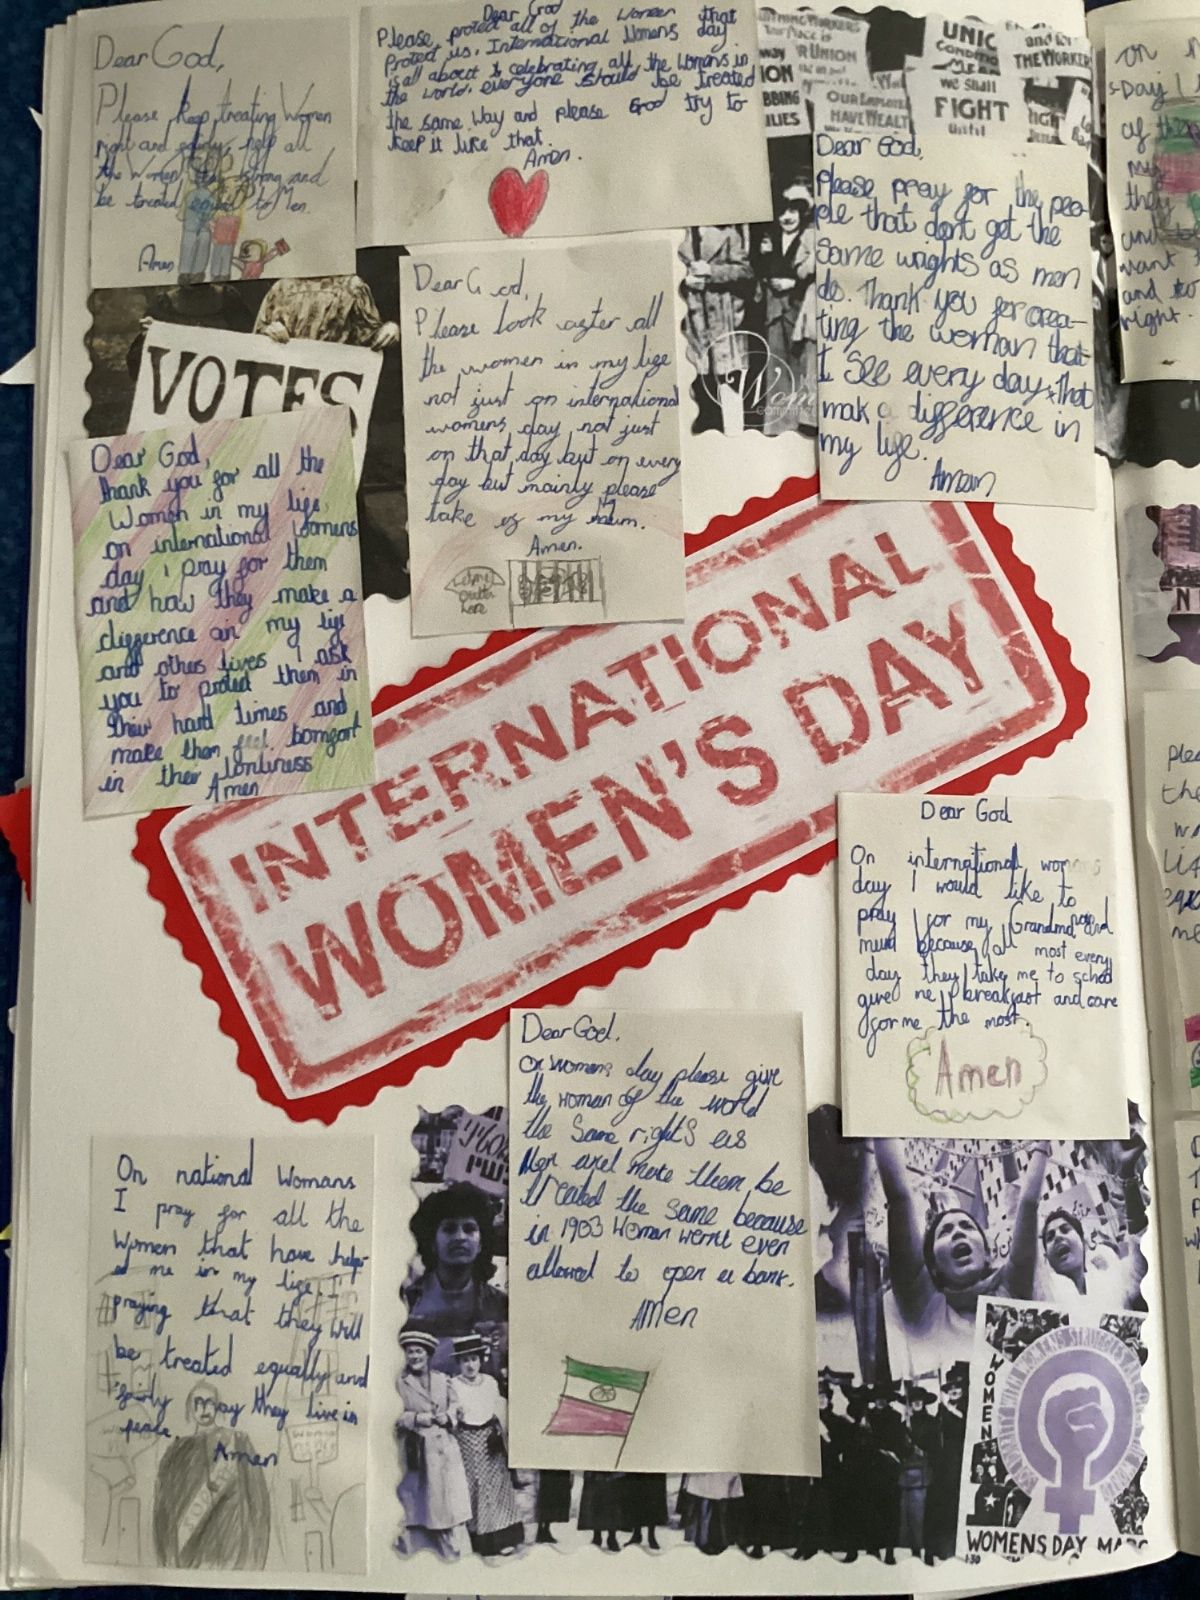 Dear God,
Please keep treating Women
right and equaly, help all
the Women stay strong and
be treated equal to Men.
Amen
Dear God
Please protect all of the Women that
Proted us. International Womens day
is all about celebrating all the Womans in
the world, everyone should be treated
the same Way and please God try to
keep it like that.
Amen.
UNION
OUR EMPLOY
HAVE WEALT
UNIC
WE SHALL
FIGHT
Until
and for
THE WORKER
Dear God,
please pray for the peo-
ple that dont get the
same wrights as men
do. Thank you for crea-
ting the woman that
I see every day that
mak a difference in
my life.
Amen
VOTES
Dear God,
Please look after all
the women in my life
not just on international
womens day not just
on that day but on every
day but mainly please
take of my mum.
Amen.
Dear God,
thank you for all the
Women in my life,
on international Womens
day i pray for them
and how they make a
difference in my life
and others lives I ask
you to protect them in
their hard times and
make them feel comfort
in their lonliness
Amen
INTERNATIONAL
WOMEN'S DAY
Dear God
On international womens
day I would like to
pray for my Grandma and
mum because all most every
day they take me to school
give me breakfast and care
for me the most.
Amen
Dear God.
On womens day please give
the woman of the world
the Same rights as
Men and make them be
treated the same because
in 1903 Woman wernt even
allowed to open a bank.
AMen
On national Womans
I pray for all the
Women that have help-
ed me in my life. I
praying that they will
be treated equally and
fairly may they live in
peace
Amen
WOMEN
WOMENS DAY MARC
on
Day I
of the
my
they
and
want
and to
right.